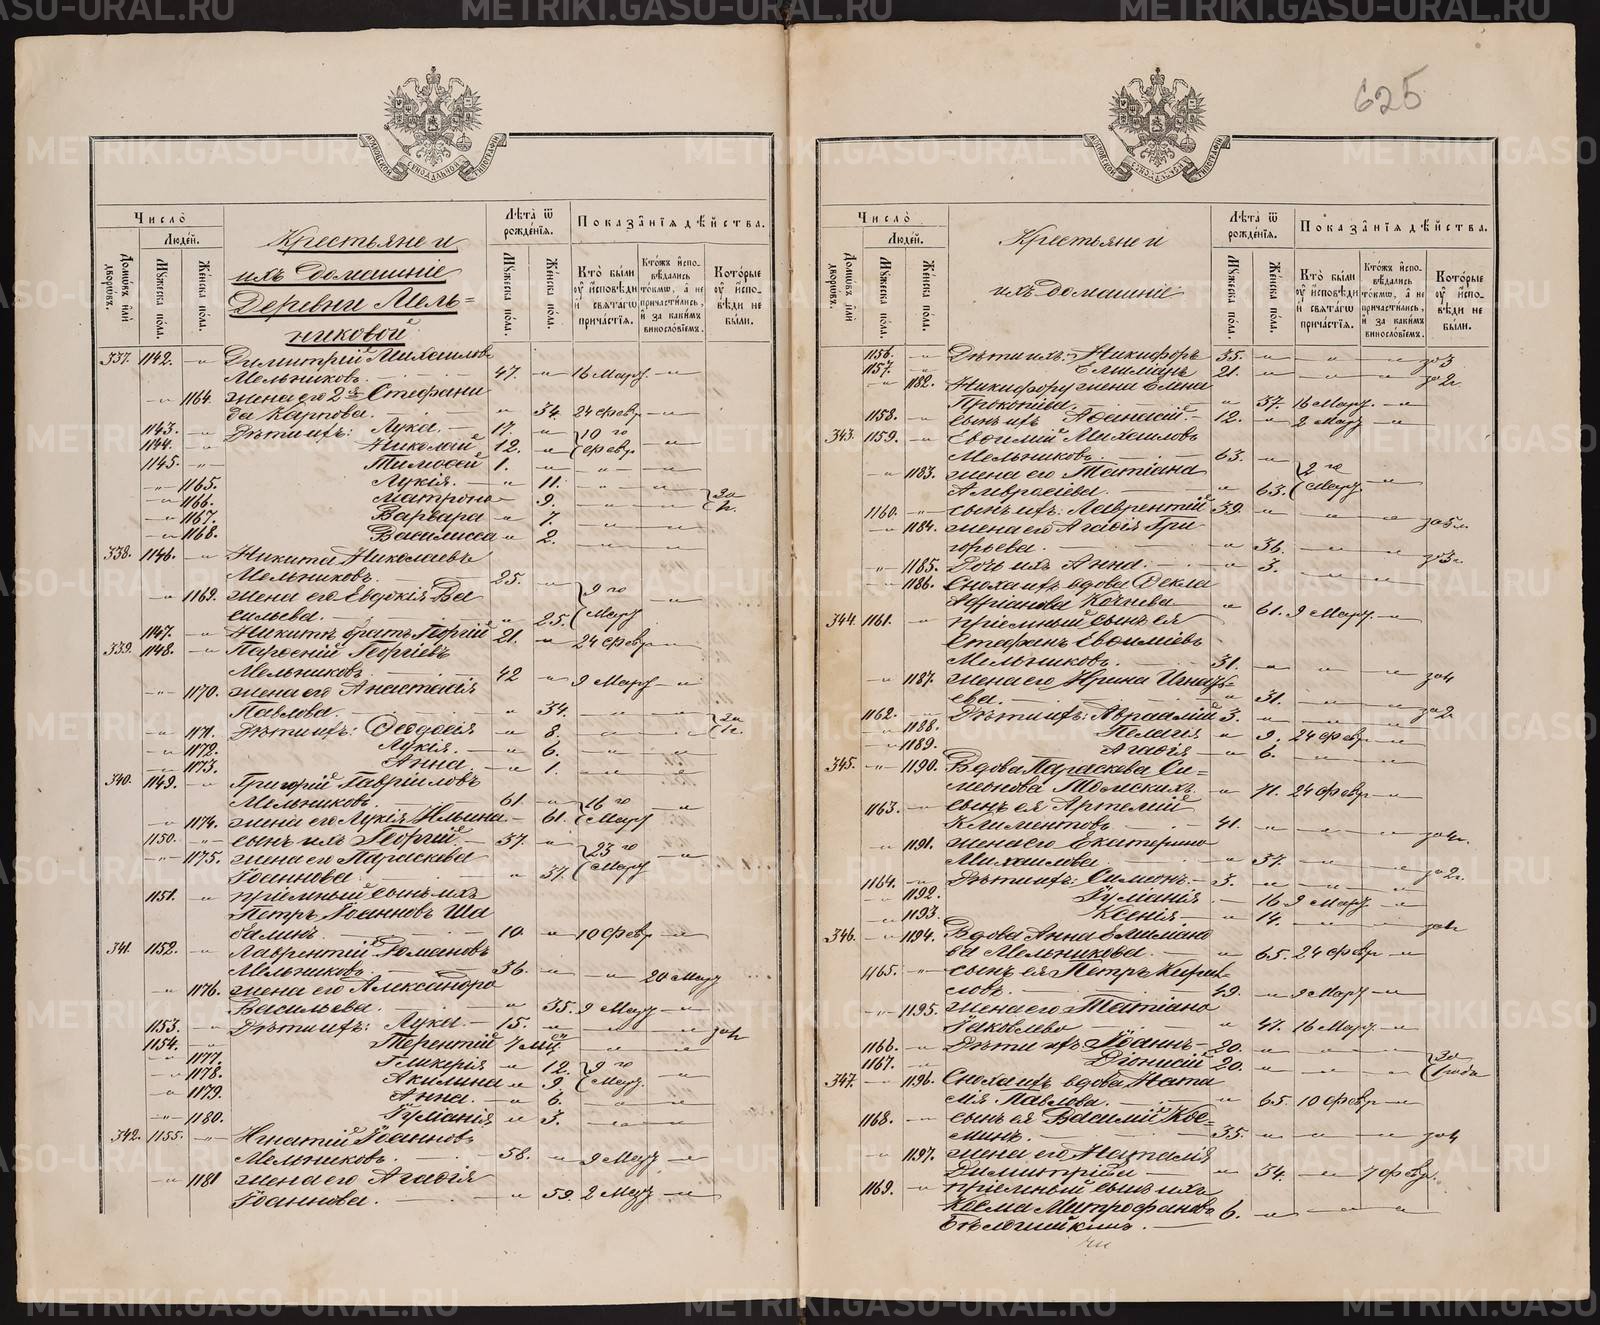 625
Число
Людей.
Домовъ или дворовъ.
Мужеска пола.
Женска пола.
Крестьяне и
ихъ домашніе
Деревни Мель-
никовой
Лѣта ѿ рожденія.
Мужеска пола.
Женска пола.
Показанія дѣйства.
Кто были у исповѣди и святаго причастія.
Кто жъ исповѣдались токмо, а не причастились, и за какимъ винословіемъ.
Которые у исповѣди не были.
337. 1142. Димитрій Михаиловъ
Мельниковъ. 47. 16 Мару.
1164. жена его 2я Стефани
да Карпова. 34. 24 февр
1143. Дѣти ихъ: Лука. 17. 10 го
1144. Николай 12. февр.
1145. Тимоѳей 1.
1165. Лукія. 11.
1166. Матрона 9. за
1167. Варвара 7.
1168. Василисса 2.
338. 1146. Никита Николаевъ
Мельниковъ. 25. 9 го
1169. жена его Евдокія Ва
сильева. 25. Мару
1147. Никиты братъ Георгій 21. 24 февр
339. 1148. Парѳеній Георгіевъ
Мельниковъ 42 9 Мару
1170. жена его Анастасія
Павлова. 34.
1171. Дѣти ихъ: Ѳеодосія 8.
1172. Лукія. 6.
1173. Анна. 1.
340. 1149. Григорій Гавріиловъ
Мельниковъ. 61. 16 го
1174. жена его Лукія Ильина 61. Мару
1150. сынъ ихъ Георгій 37. 23 го
1175. жена его Параскева
Іоаннова. 37. Мару
1151. пріемный сынъ ихъ
Петръ Іоанновъ Ша
балинъ. 10. 10 февр
341. 1152. Лаврентій Романовъ
Мельниковъ. 36. 20 Мару
1176. жена его Александра
Васильева. 35. 9 Мару
1153. Дѣти ихъ: Лука. 15.
1154. Терентій 7 мѣс
1177. Гликерія 12. 9 го
1178. Акилина 9. Мару.
1179. Анна. 6.
1180. Іуліанія 3.
342. 1155. Игнатій Іоанновъ
Мельниковъ. 58. 9 Мару
1181 жена его Агаѳія
Іоаннова. 59. 2 Мару
Число
Людей.
Домовъ или дворовъ.
Мужеска пола.
Женска пола.
Крестьяне и
ихъ домашніе
Лѣта ѿ рожденія.
Мужеска пола.
Женска пола.
Показанія дѣйства.
Кто были у исповѣди и святаго причастія.
Кто жъ исповѣдались токмо, а не причастились, и за какимъ винословіемъ.
Которые у исповѣди не были.
1156. Дѣти ихъ: Никифоръ 35. за 3
1157. Емиліанъ 21. за 2г.
1182. Никифору жена Елена
Прокопіева. 37. 16 Мару.
1158. сынъ ихъ Аѳанасій 12. 2 Мару
343. 1159. Евѳимій Михаиловъ
Мельниковъ. 63. 2 го
1183. жена его Татіана
Амвросіева. 63. Мару.
1160. сынъ ихъ: Лаврентій 39. за 5л.
1184. жена его Агаѳія Гри
горьева. 36. за 3г.
1185. Дочь ихъ Анна. 3.
1186. Сноха ихъ вдова Ѳекла
Адріанова Кочнева 61. 9 Мару.
344. 1161. пріемный сынъ ея
Стефанъ Евѳиміевъ
Мельниковъ. 31. за 4
1187. жена его Ирина Игнатъ-
ева. 31. за 2г
1162. Дѣти ихъ: Авраамій 3.
1188. Пелагія 9. 24 февр
1189. Агаѳія 6.
345. 1190. Вдова Параскева Си-
меонова Томскихъ 71. 24 февр
1163. сынъ ея Артемій
Климентовъ 41. за 4г.
1191. жена его Екатерина
Михаилова. 37. за 2г.
1164. Дѣти ихъ: Симеонъ. 3.
1192. Іуліанія 16 9 Мару.
1193. Ксенія 14.
346. 1194. Вдова Анна Емиліано
ва Мельникова. 65. 24 февр
1165. сынъ ея Петръ Кирил-
ловъ. 49. 9 Мару
1195. жена его Татіана
Іаковлева 47. 16 Мару
1166. Дѣти ихъ Іоаннъ 20.
1167. Діонисій 20. за
347. 1196. Сноха ихъ вдова Ната
лія Павлова. 65. 10 февр
1168. сынъ ея Василій Кос-
минъ. 35. за 4
1197. жена его Наталія
Димитріева 34. 7 февр.
1169. пріемный сынъ ихъ
Косма Митрофановъ 6.